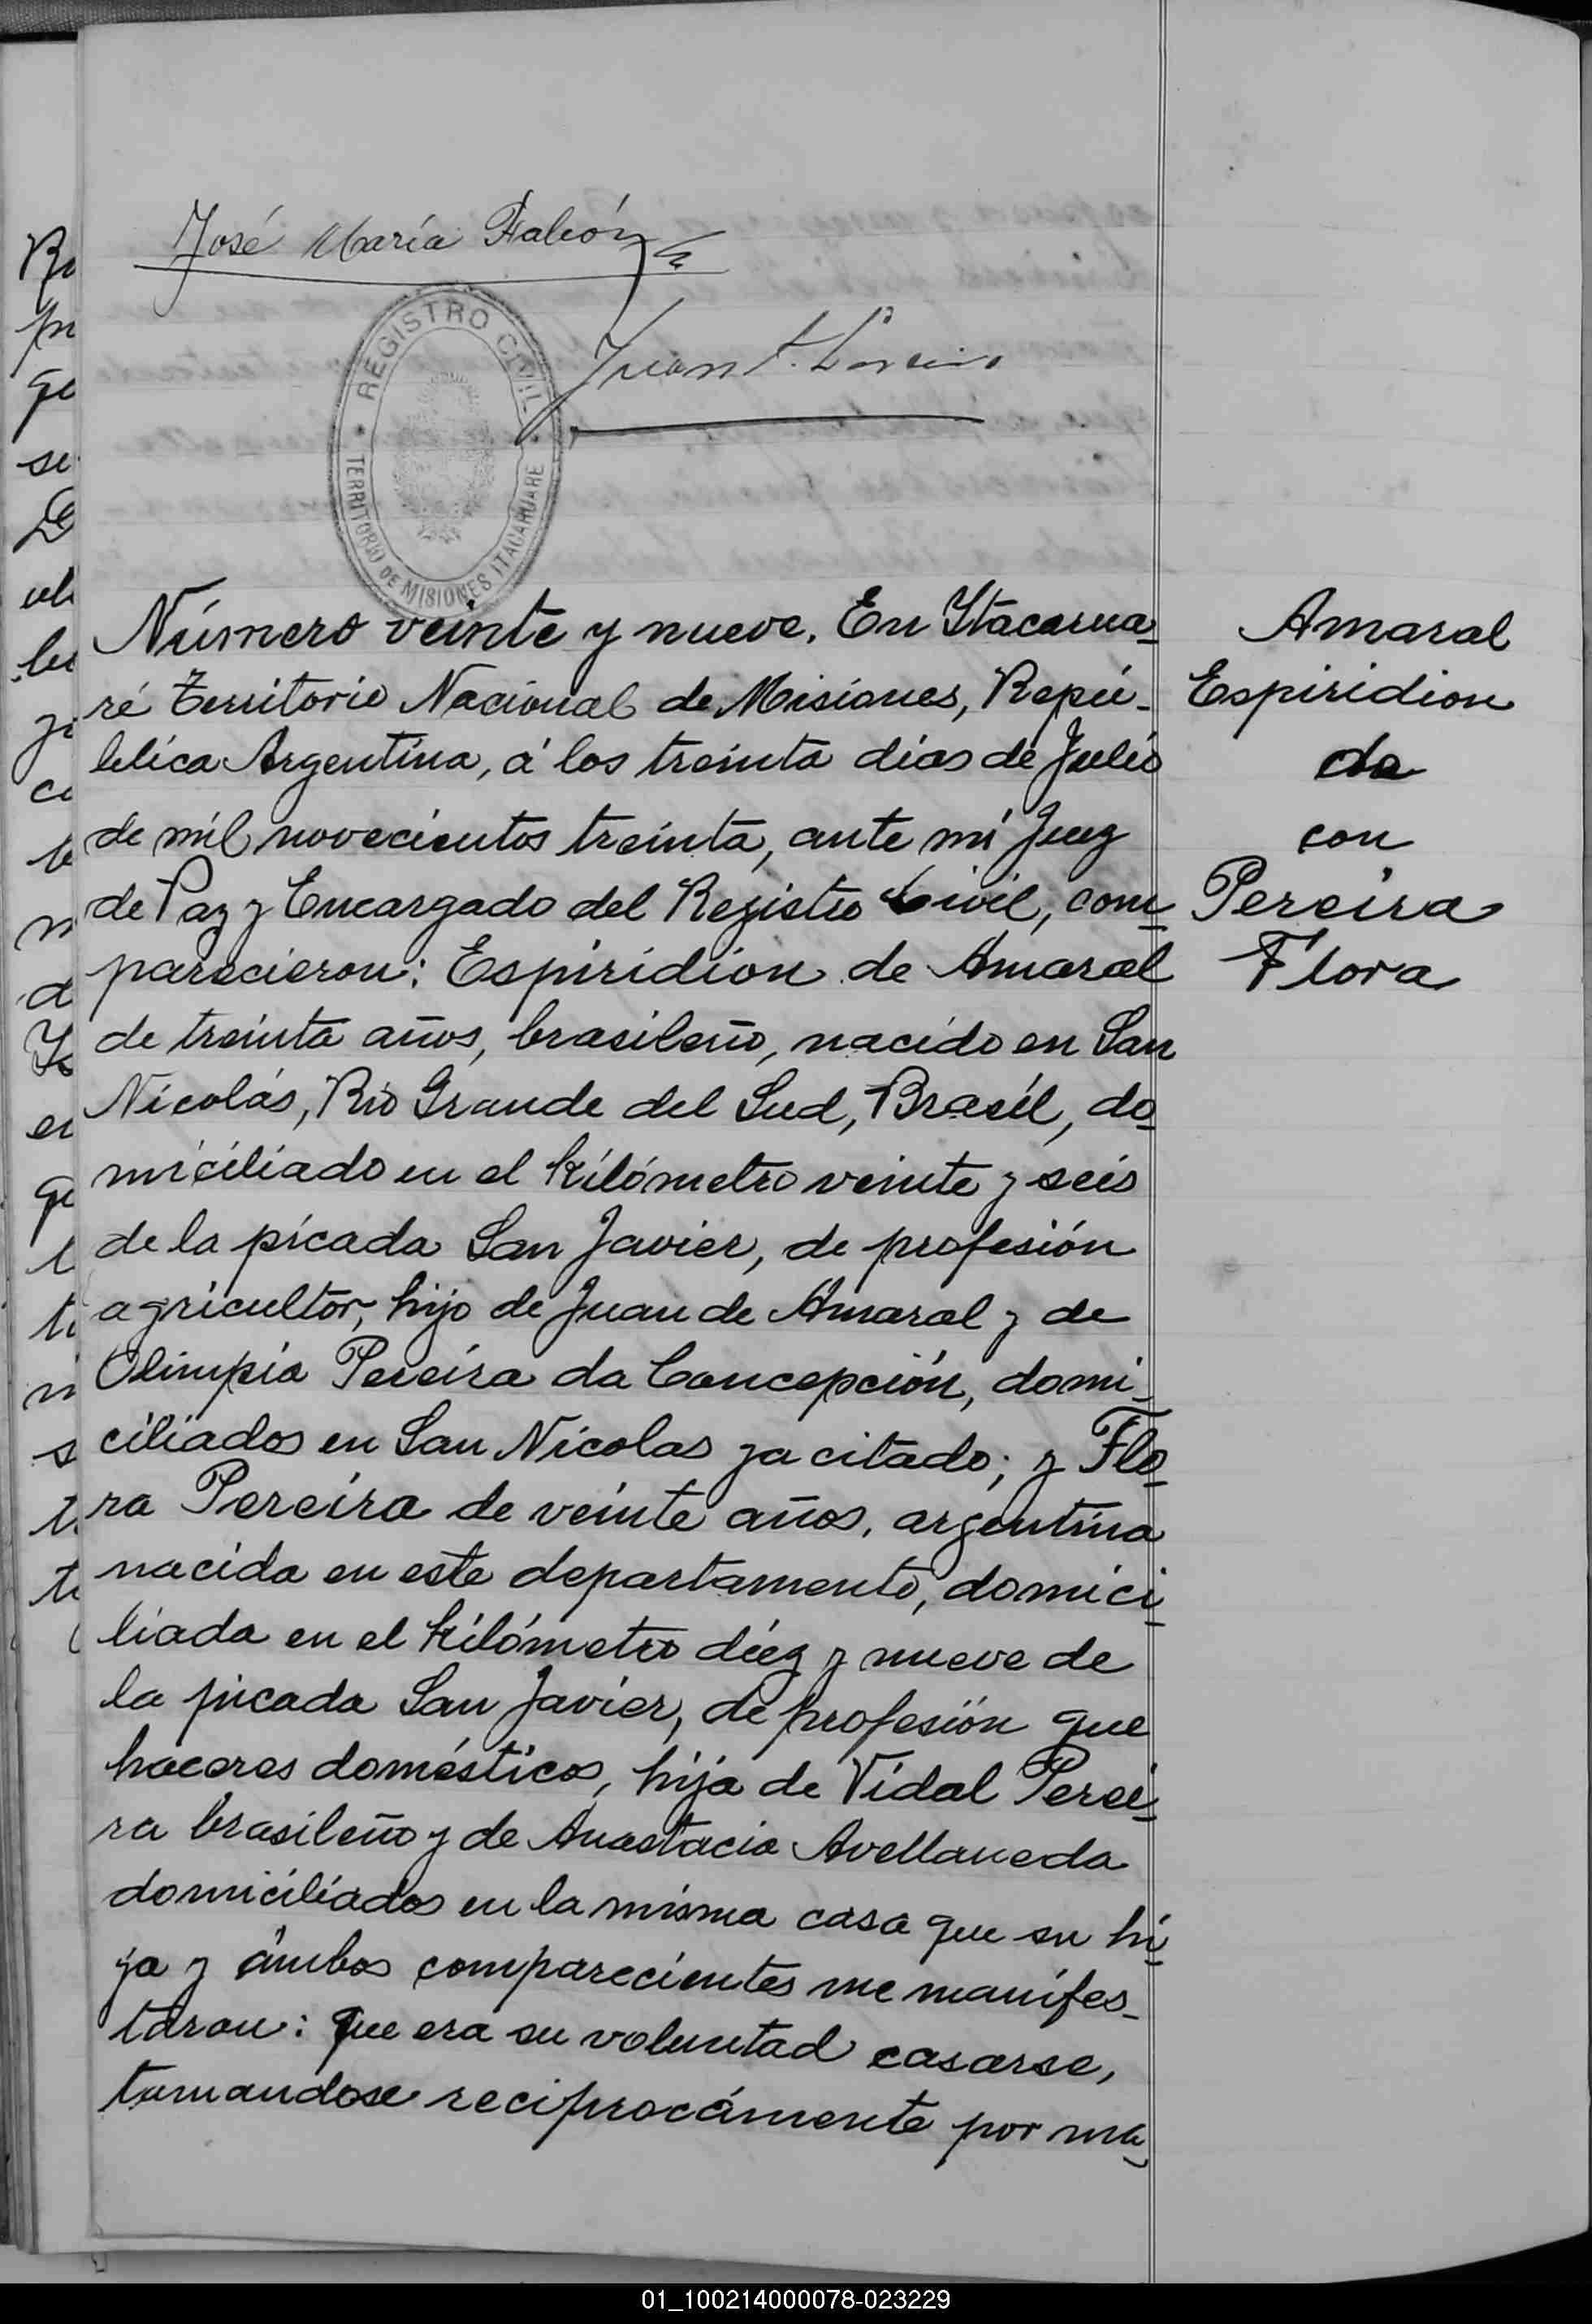 José María Falcón
REGISTRO CIVIL
TERRITORIO DE MISIONES ITACARUARE
Juan
Número veinte y nueve. En Ytacarua-
ré territorio Nacional de Misiones, Repú-
blica Argentina, á los treinta días de Julio
de mil novecientos treinta, ante mi Juez
de Paz y Encargado del Registro Civil, com-
parecieron: Espiridion de Amaral
de treinta años, brasileño, nacido en San
Nicolás, Rio Grande del Sud, Brasíl, do-
miciliado en el kilómetro veinte y seis
de la picada San Javier, de profesión
agricultor, hijo de Juan de Amaral y de
Olimpia Pereira da Concepción, domi-
ciliados en San Nicolas ya citado; y Flo-
ra Pereira de veinte años, argentina
nacida en este departamento, domici-
liada en el kilómetro diez y nueve de
la picada San Javier, de profesión que
haceres domésticos, hija de Vidal Perei-
ra brasileño y de Anastacia Avellaneda
domiciliados en la misma casa que su hi-
ja y ámbos comparecientes me manifes-
taron: que era su voluntad casarse,
tomandose reciprocámente por ma-
Amaral
Espiridion
de
con
Pereira
Flora
01_100214000078-023229